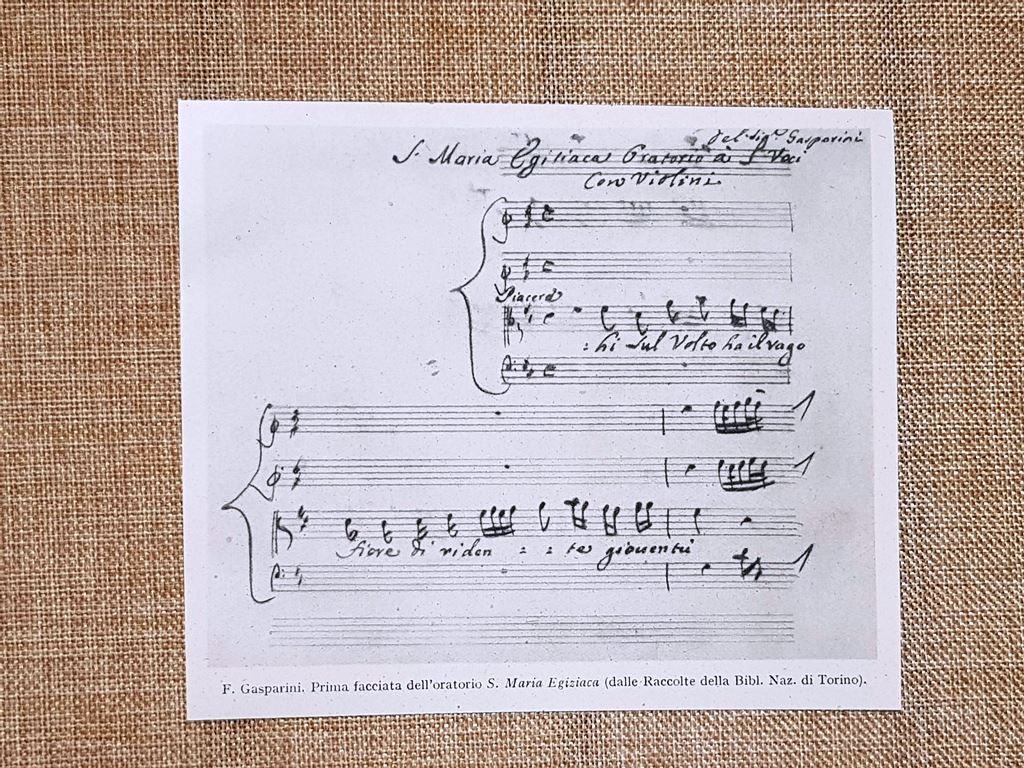 Del Sig.r Gasparini
S. Maria Egitiaca Oratorio à 5 Voci
Con Violini
Piacere
:hi sul Volto ha il vago
fiore di riden : : te gioventù
F. Gasparini. Prima facciata dell'oratorio S. Maria Egiziaca (dalle Raccolte della Bibl. Naz. di Torino).